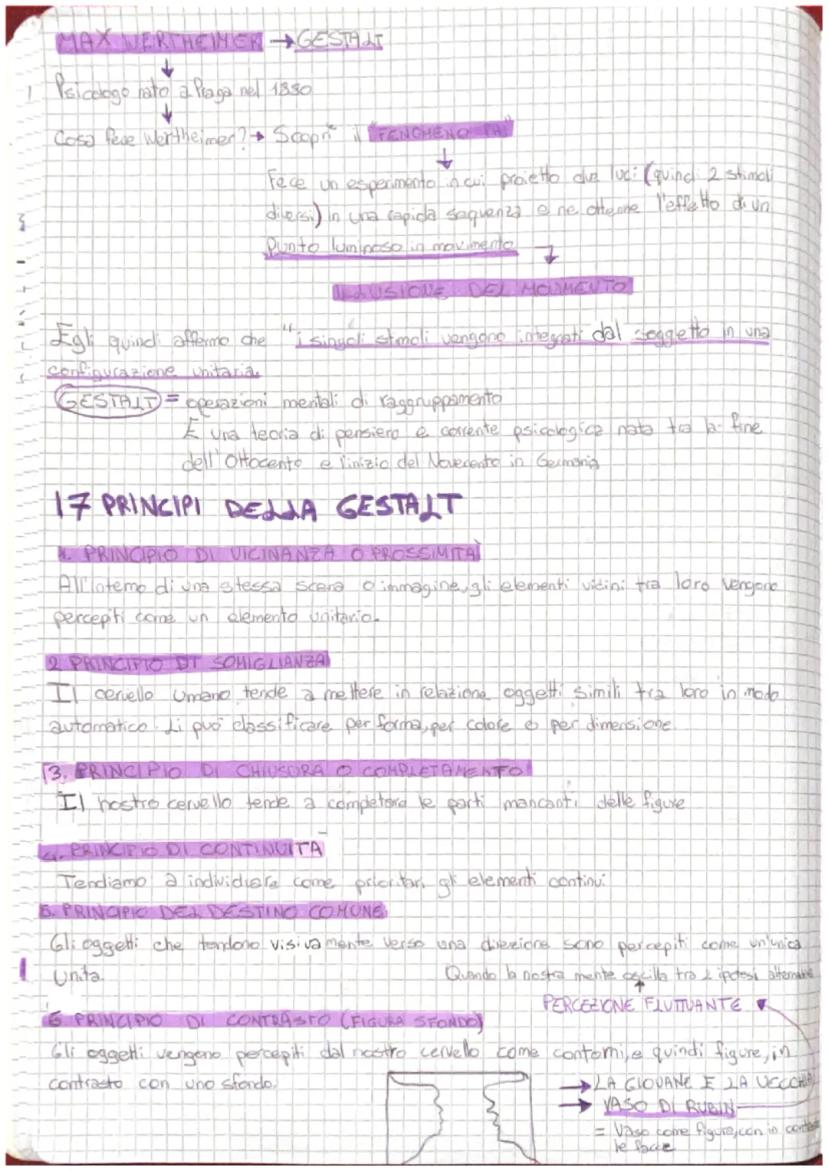 MAX WERTHEIMER → GESTALT
Psicologo nato a Praga nel 1880
Cosa fece Wertheimer? → Scoprì il "FENOMENO PHI"
Fece un esperimento in cui proiettò due luci (quindi 2 stimoli
diversi) in una rapida sequenza e ne ottenne l'effetto di un
punto luminoso in movimento
ILLUSIONE DEL MOVIMENTO
Egli quindi affermò che "i singoli stimoli vengono integrati dal soggetto in una
configurazione unitaria
GESTALT = operazioni mentali di raggruppamento
È una teoria di pensiero e corrente psicologica nata tra la fine
dell'Ottocento e l'inizio del Novecento in Germania
I 7 PRINCIPI DELLA GESTALT
1. PRINCIPIO DI VICINANZA O PROSSIMITÀ
All'interno di una stessa scena o immagine, gli elementi vicini tra loro vengono
percepiti come un elemento unitario.
2 PRINCIPIO DI SOMIGLIANZA
Il cervello umano tende a mettere in relazione oggetti simili tra loro in modo
automatico. Li può classificare per forma, per colore o per dimensione.
3. PRINCIPIO DI CHIUSURA O COMPLETAMENTO
Il nostro cervello tende a completare le parti mancanti delle figure
4. PRINCIPIO DI CONTINUITÀ
Tendiamo a individuare come prioritari gli elementi continui
5. PRINCIPIO DEL DESTINO COMUNE
Gli oggetti che tendono visivamente verso una direzione sono percepiti come un'unica
unità.
Quando la nostra mente oscilla tra 2 ipotesi alternate
PERCEZIONE FLUTTUANTE
6 PRINCIPIO DI CONTRASTO (FIGURA SFONDO)
Gli oggetti vengono percepiti dal nostro cervello come contorni, e quindi figure, in
contrasto con uno sfondo.
→ LA GIOVANE E LA VECCHIA
→ VASO DI RUBIN
= Vaso come figura, con in
le facce